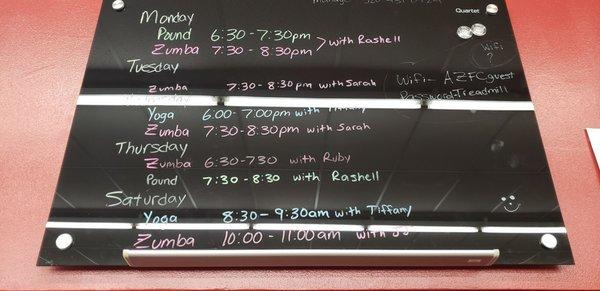 Quartet
Monday
Pound 6:30-7:30pm
Zumba 7:30-8:30pm
with Rashell
Wifi
?
Tuesday
Zumba 7:30-8:30pm with Sarah
Wifi- AZFCguest
Password-Treadmill
Yoga 6:00-7:00pm with Tiffany
Zumba 7:30-8:30pm with Sarah
Thursday
Zumba 6:30-730 with Ruby
Pound 7:30-8:30 with Rashell
Saturday
Yoga 8:30-9:30am with Tiffany
Zumba 10:00-11:00am with